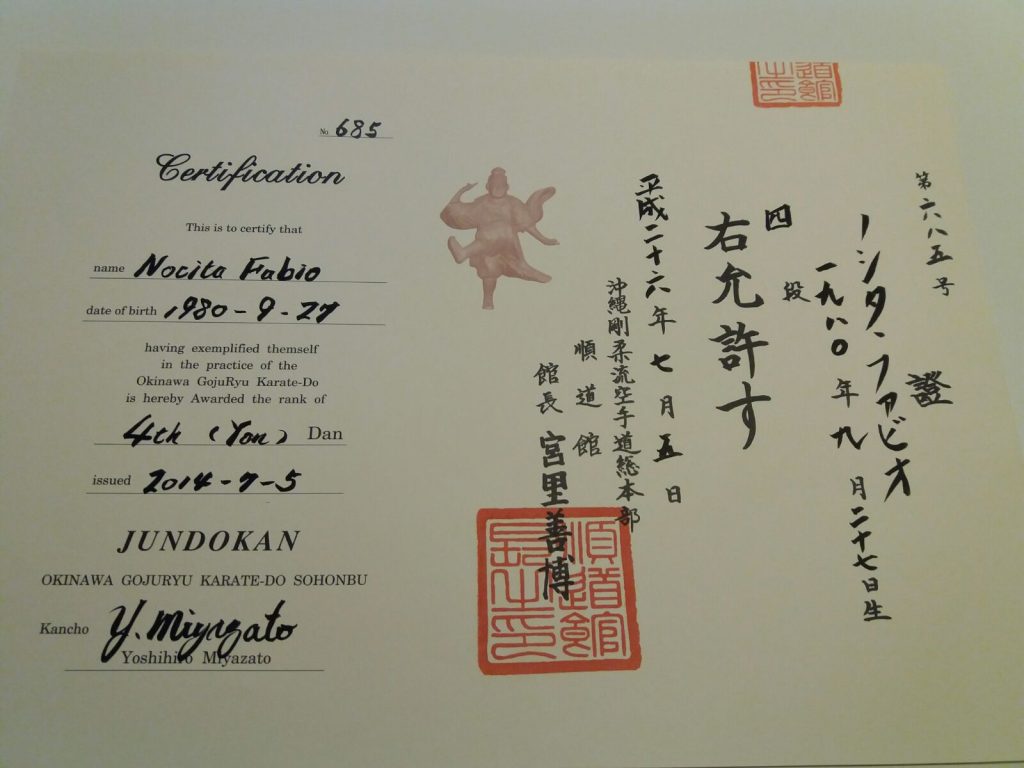 No 685
Certification
This is to certify that
name Nocita Fabio
date of birth 1980-9-27
having exemplified themself
in the practice of the
Okinawa GojuRyu Karate-Do
is hereby Awarded the rank of
4th (Yon) Dan
issued 2014-7-5
JUNDOKAN
OKINAWA GOJURYU KARATE-DO SOHONBU
Kancho Y. Miyazato
Yoshihiro Miyazato
第六八五号
證
ノシタ・ファビオ
一九八〇年九月二十七日生
四段
右允許す
平成二十六年七月五日
沖縄剛柔流空手道総本部
順道館
館長 宮里善博
順道館
長之印
道館
之印